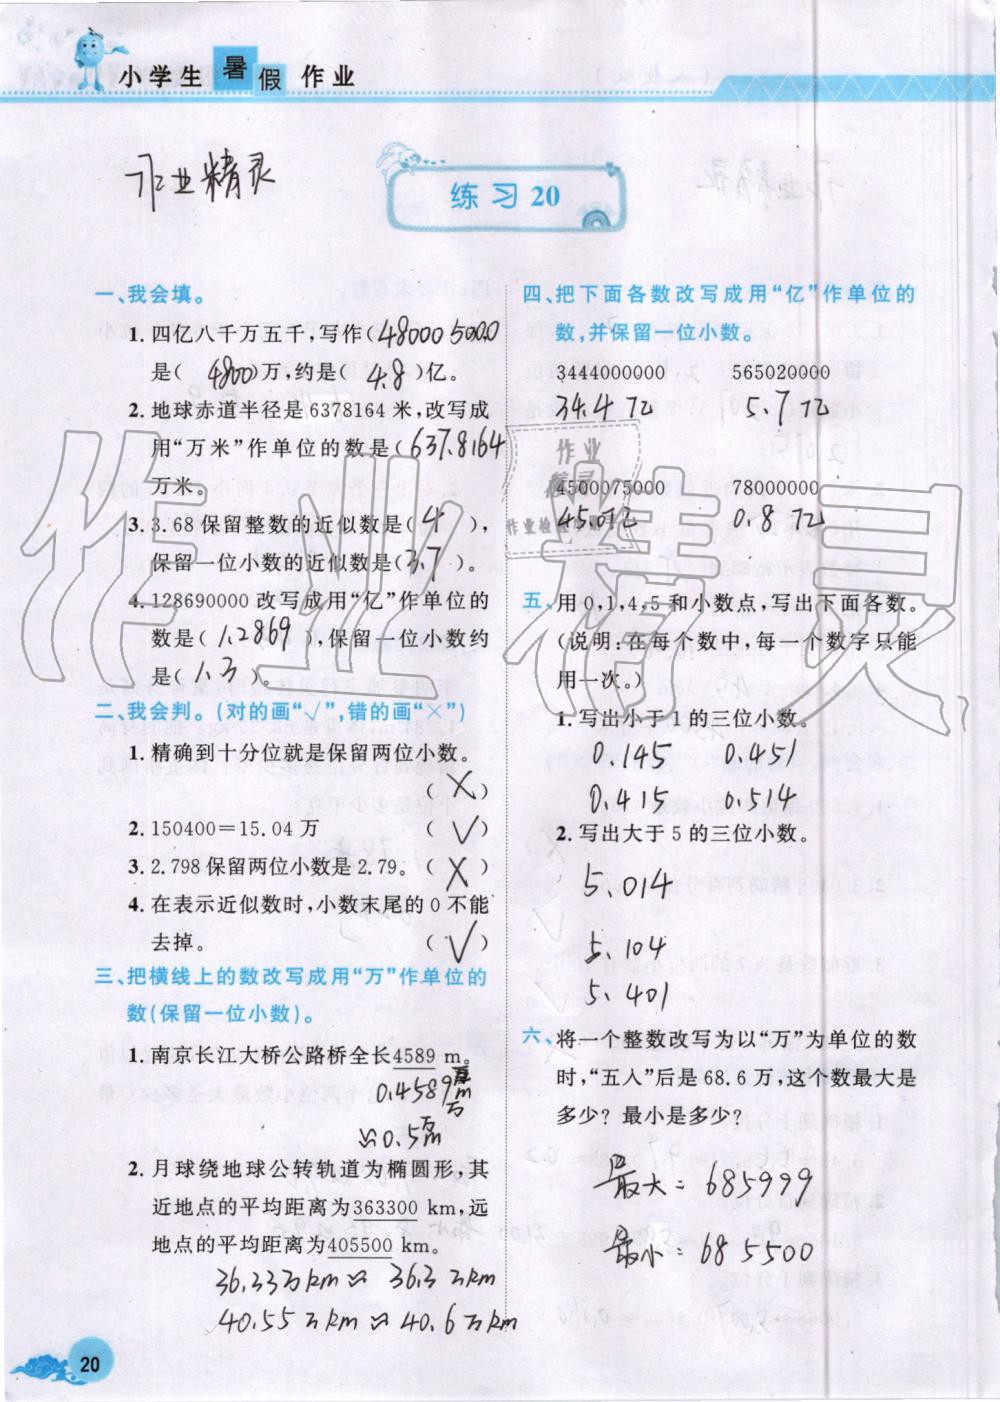 小学生暑假作业
作业精灵
练习20
一、我会填。
1. 四亿八千万五千,写作(480005000)
是(4800)万,约是(4.8)亿。
2. 地球赤道半径是6378164米,改写成
用“万米”作单位的数是(637.8164
万米。
3. 3.68保留整数的近似数是(4),
保留一位小数的近似数是(3.7)。
4. 128690000改写成用“亿”作单位的
数是(1.2869),保留一位小数约
是(1.3)。
二、我会判。(对的画“√”,错的画“×”)
1. 精确到十分位就是保留两位小数。
(×)
2. 150400=15.04万 (√)
3. 2.798保留两位小数是2.79。(×)
4. 在表示近似数时,小数末尾的0不能
去掉。 (√)
三、把横线上的数改写成用“万”作单位的
数(保留一位小数)。
1. 南京长江大桥公路桥全长4589 m。
0.4589万m
≈0.5万m
2. 月球绕地球公转轨道为椭圆形,其
近地点的平均距离为363300 km,远
地点的平均距离为405500 km。
36.33万km≈36.3万km
40.55万km≈40.6万km
四、把下面各数改写成用“亿”作单位的
数,并保留一位小数。
3444000000 565020000
34.4亿 5.7亿
4500075000 78000000
45.0亿 0.8亿
五、用0,1,4,5和小数点,写出下面各数。
(说明:在每个数中,每一个数字只能
用一次。)
1. 写出小于1的三位小数。
0.145 0.451
0.415 0.514
2. 写出大于5的三位小数。
5.014
5.104
5.401
六、将一个整数改写为以“万”为单位的数
时,“五人”后是68.6万,这个数最大是
多少?最小是多少?
最大=685999
最小=685500
20
作业精灵